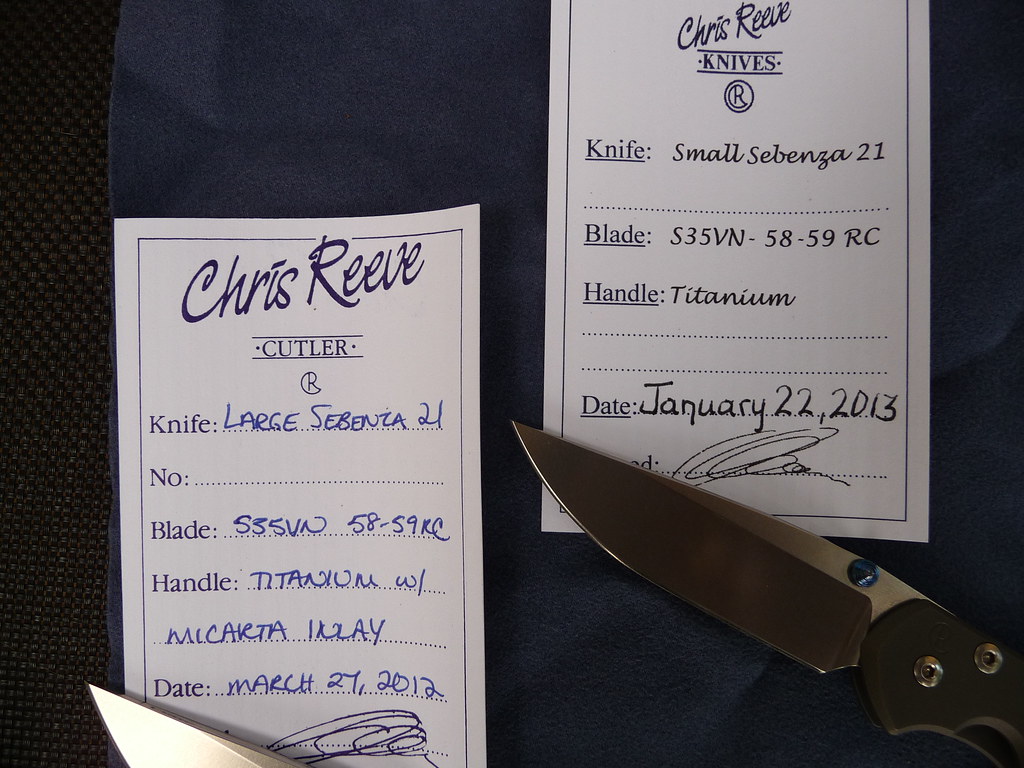 Chris Reeve
·CUTLER·
R
Knife: LARGE SEBENZA 21
No:
Blade: S35VN 58-59RC
Handle: TITANIUM W/
MICARTA INLAY
Date: MARCH 27, 2012
Chris Reeve
·KNIVES·
R
Knife: Small Sebenza 21
Blade: S35VN - 58-59 RC
Handle: Titanium
Date: January 22, 2013